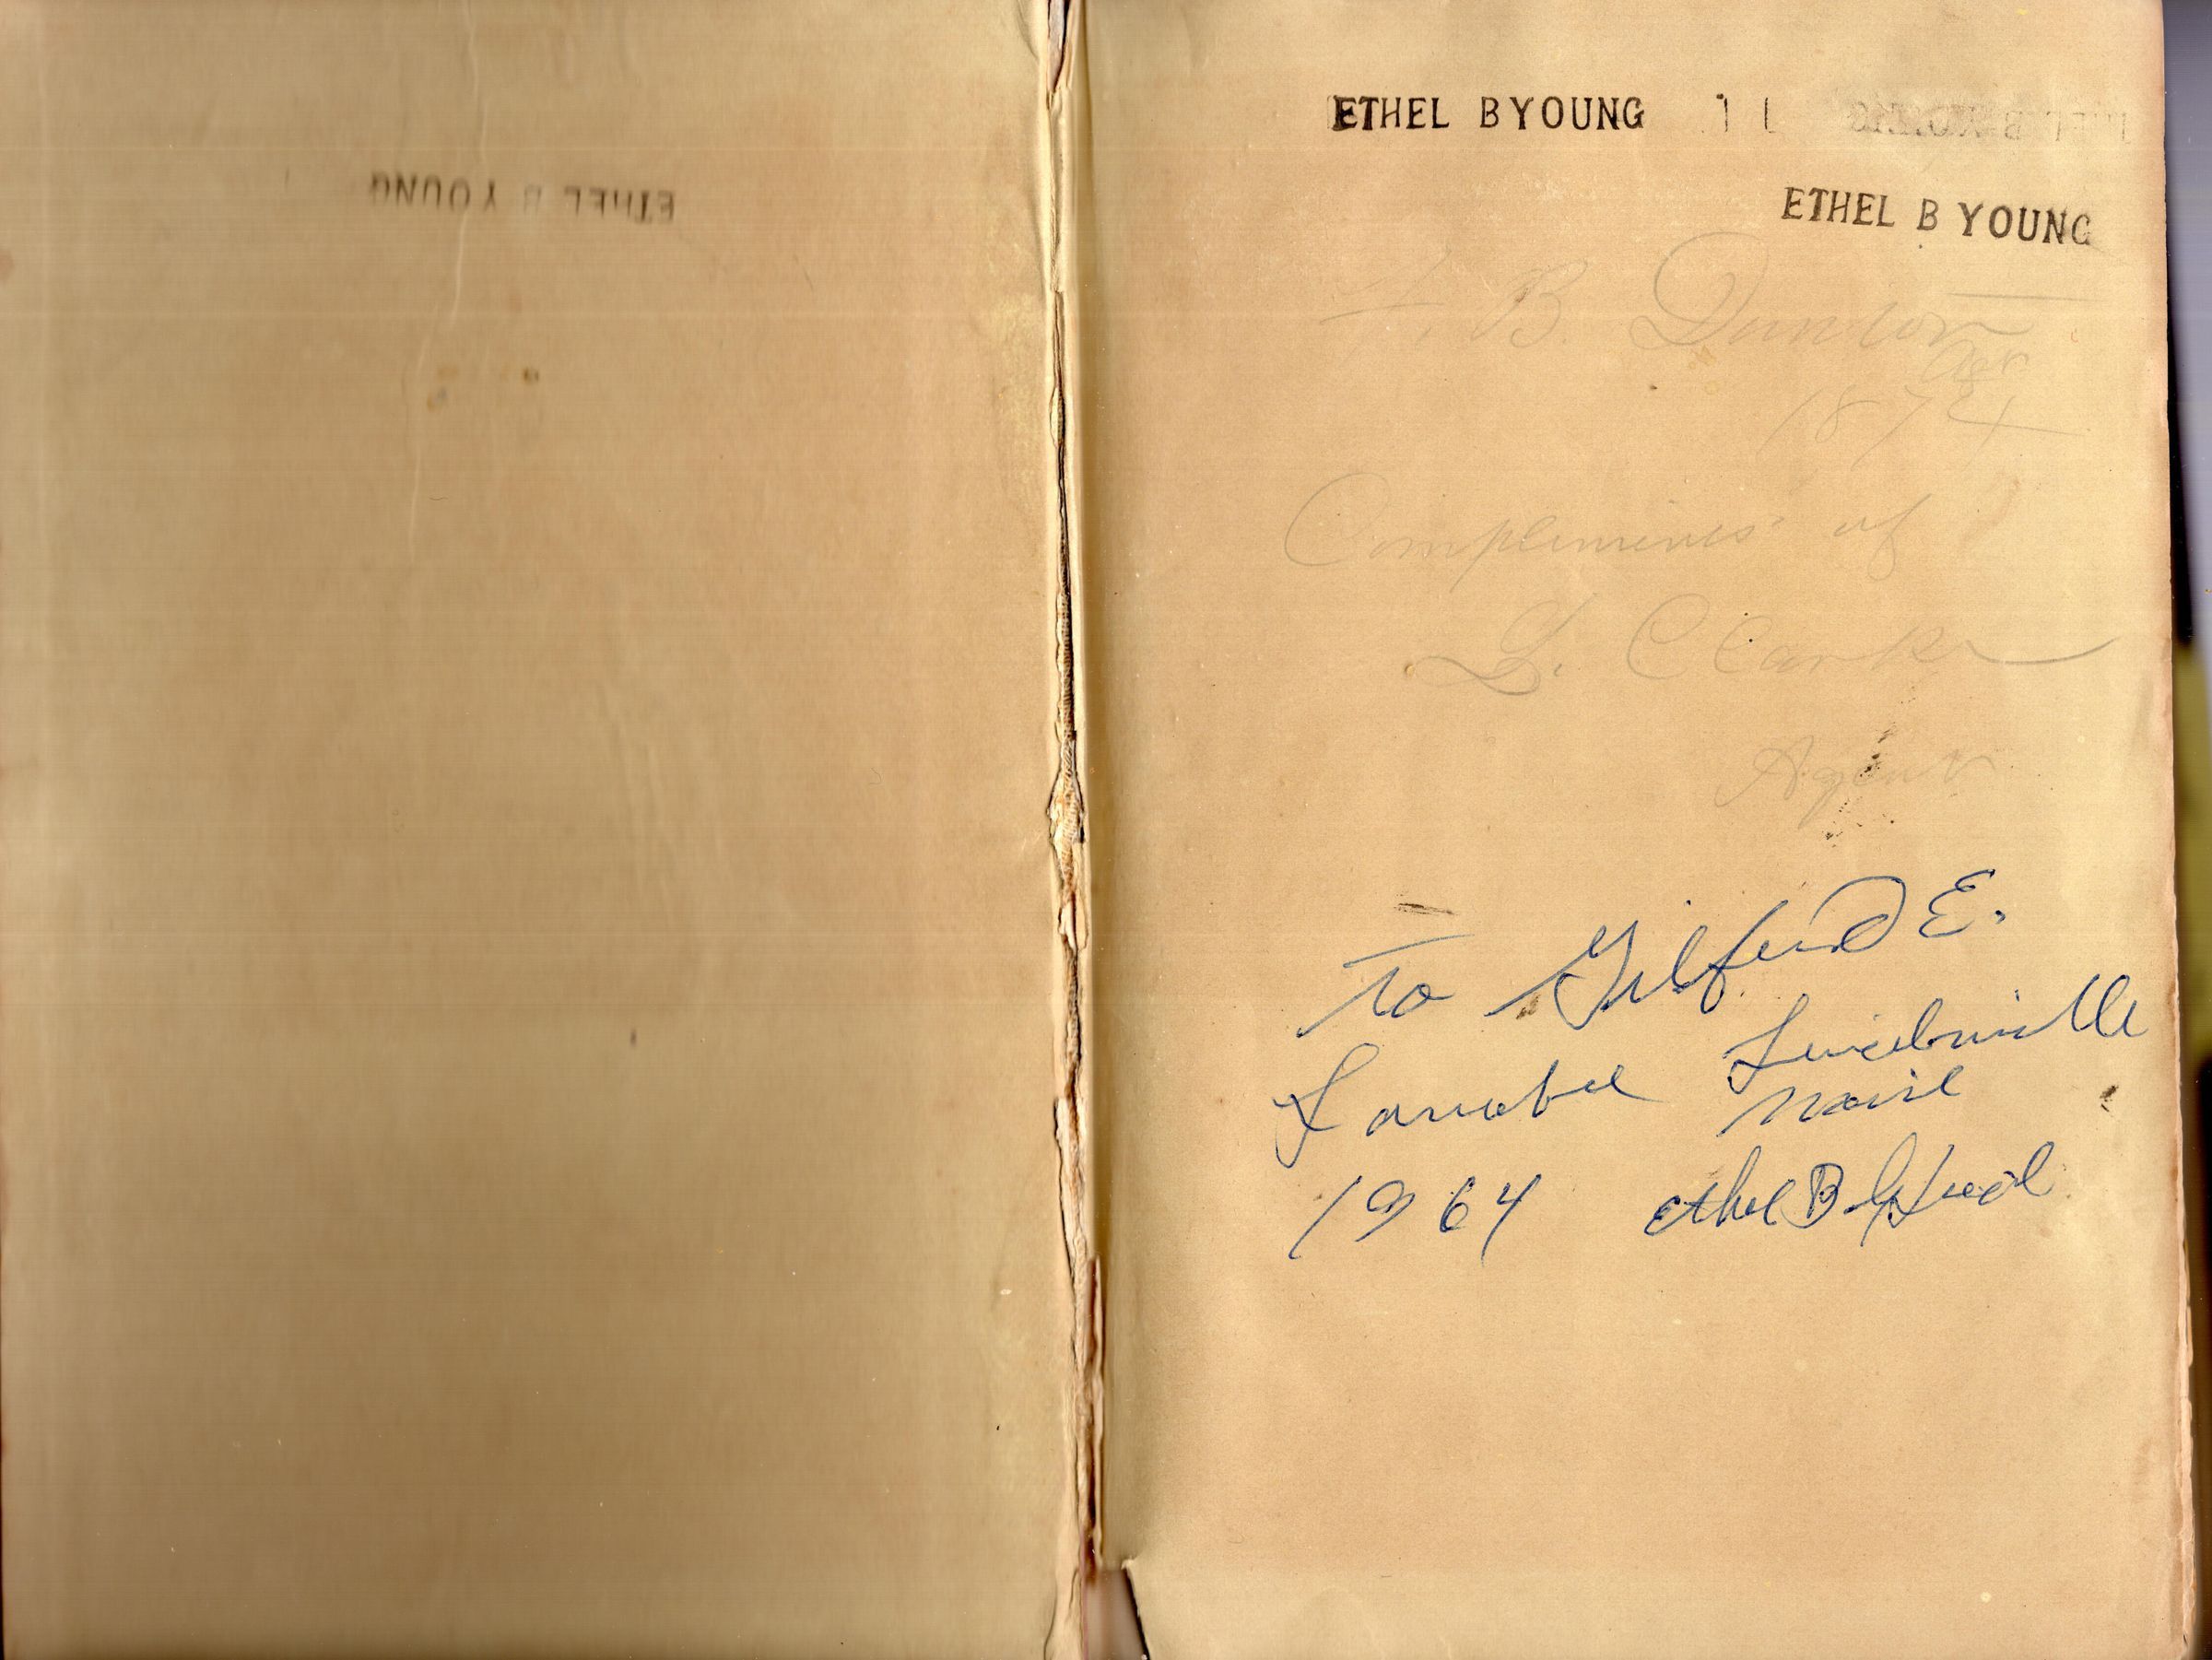 ETHEL B YOUNG
ETHEL BYOUNG
ETHEL B YOUNG
F. B. Dunton
1874
Compliments of
L. Clark
Agent
To Gilford E.
Lincolnville
1964 Ethel B